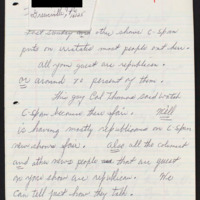 Greenville,
Last Sunday and other shows C-Span
puts on irritates most people out here.
all your guest are republican.
or around 90 percent of them.
This guy Cal Thomas said watch
C-Span because there fair. Still
is having mostly republicans on C-Span
news shows from. Also all the colunest
and other news people that are guest
on your show are republican. We
can tell just how they talk.